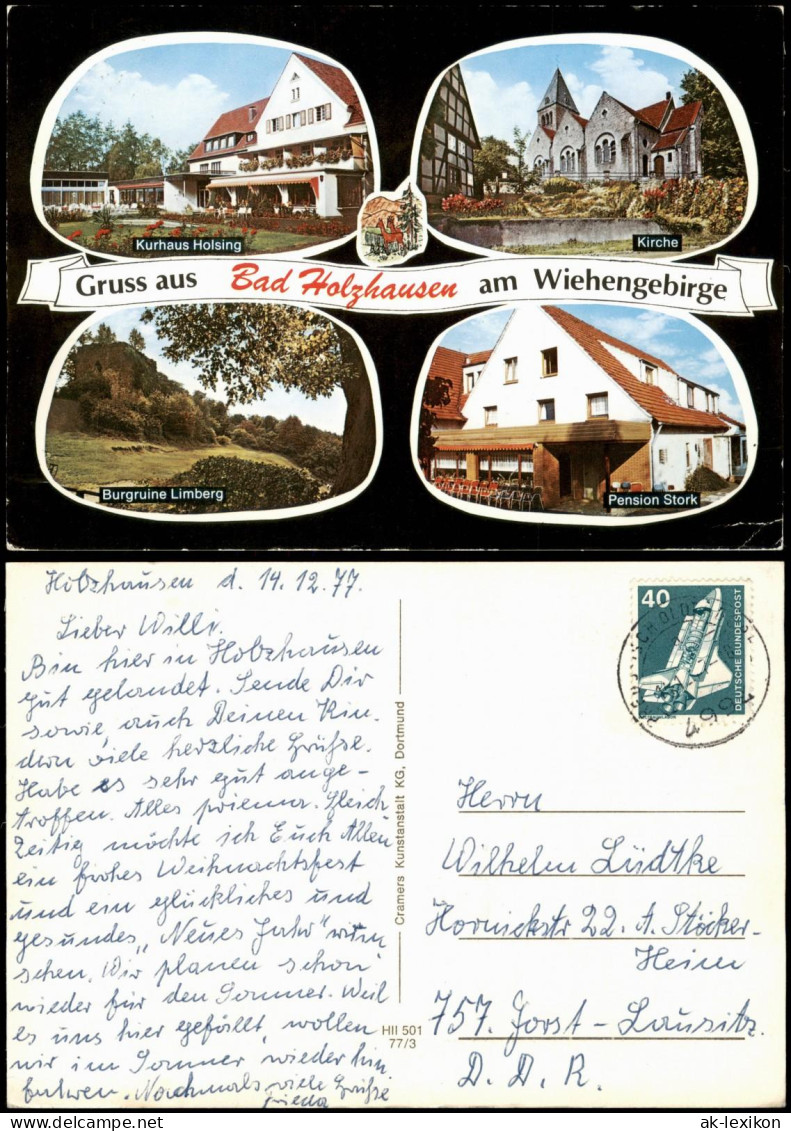 Kurhaus Holsing
Kirche
Gruss aus Bad Holzhausen am Wiehengebirge
Burgruine Limberg
Pension Stork
Holzhausen d. 14.12.77.
Lieber Willi.
Bin hier in Holzhausen
gut gelandet. Sende Dir
sowie, auch Deinen Kin-
dern viele herzliche Grüße.
Habe es sehr gut ange-
troffen. Alles priema. Gleich
Zeitig möchte ich Euch Allen
ein frohes Weihnachtsfest
und ein glückliches und
gesundes „Neues Jahr" wün
schen. Wir planen schon
wieder für den Sommer. Weil
es uns hier gefällt, wollen
wir im Sommer wieder hin
fahren. Nochmals viele Grüße
Frieda
Cramers Kunstanstalt KG, Dortmund
HII 501
77/3
40
DEUTSCHE BUNDESPOST
Herrn
Wilhelm Lüdtke
Hornickstr 22. A. Stöcker-
Heim
757. Forst-Lausitz.
D. D. R.
ak-lexikon.com